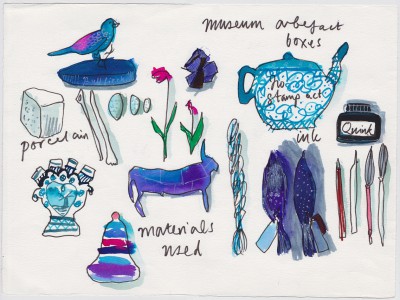 museum artefact
boxes
No
stamp act
porcelain
ink
Quink
materials
used